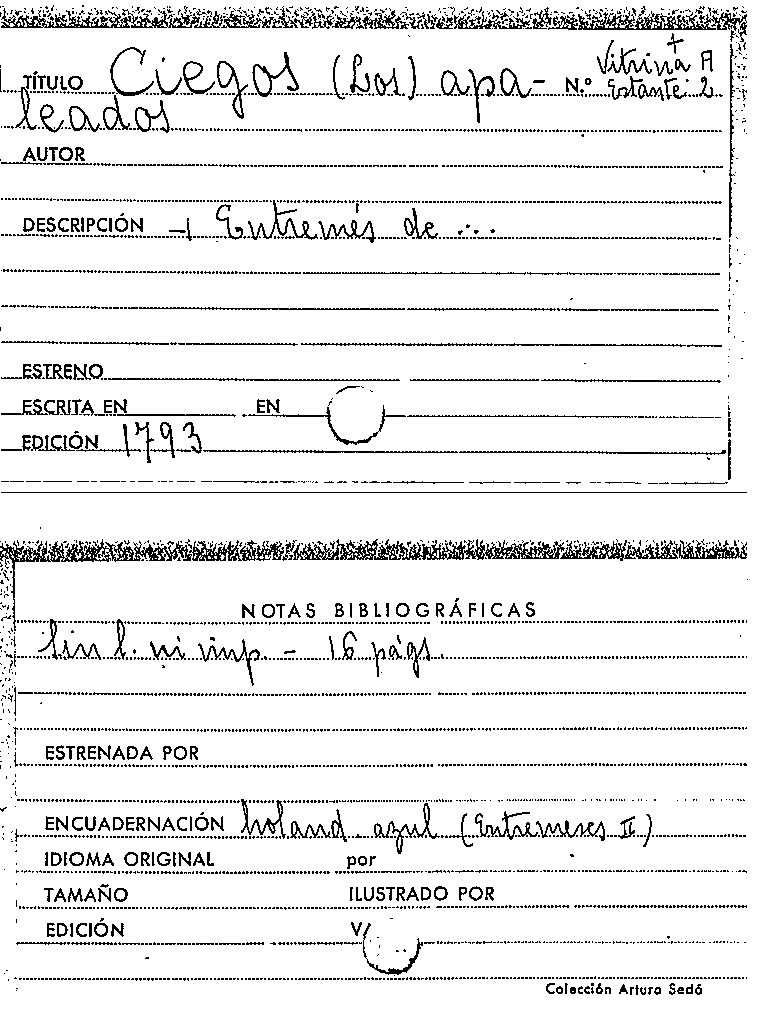 TÍTULO Ciegos (Los) apa- N.º Vitrina A
Estante 2
leados
AUTOR
DESCRIPCIÓN Entremés de ...
ESTRENO
ESCRITA EN EN
EDICIÓN 1793
NOTAS BIBLIOGRÁFICAS
Sin l. ni imp. - 16 págs.
ESTRENADA POR
ENCUADERNACIÓN holand. azul (Entremeses II)
IDIOMA ORIGINAL por
TAMAÑO ILUSTRADO POR
EDICIÓN V/
Colección Arturo Sedó